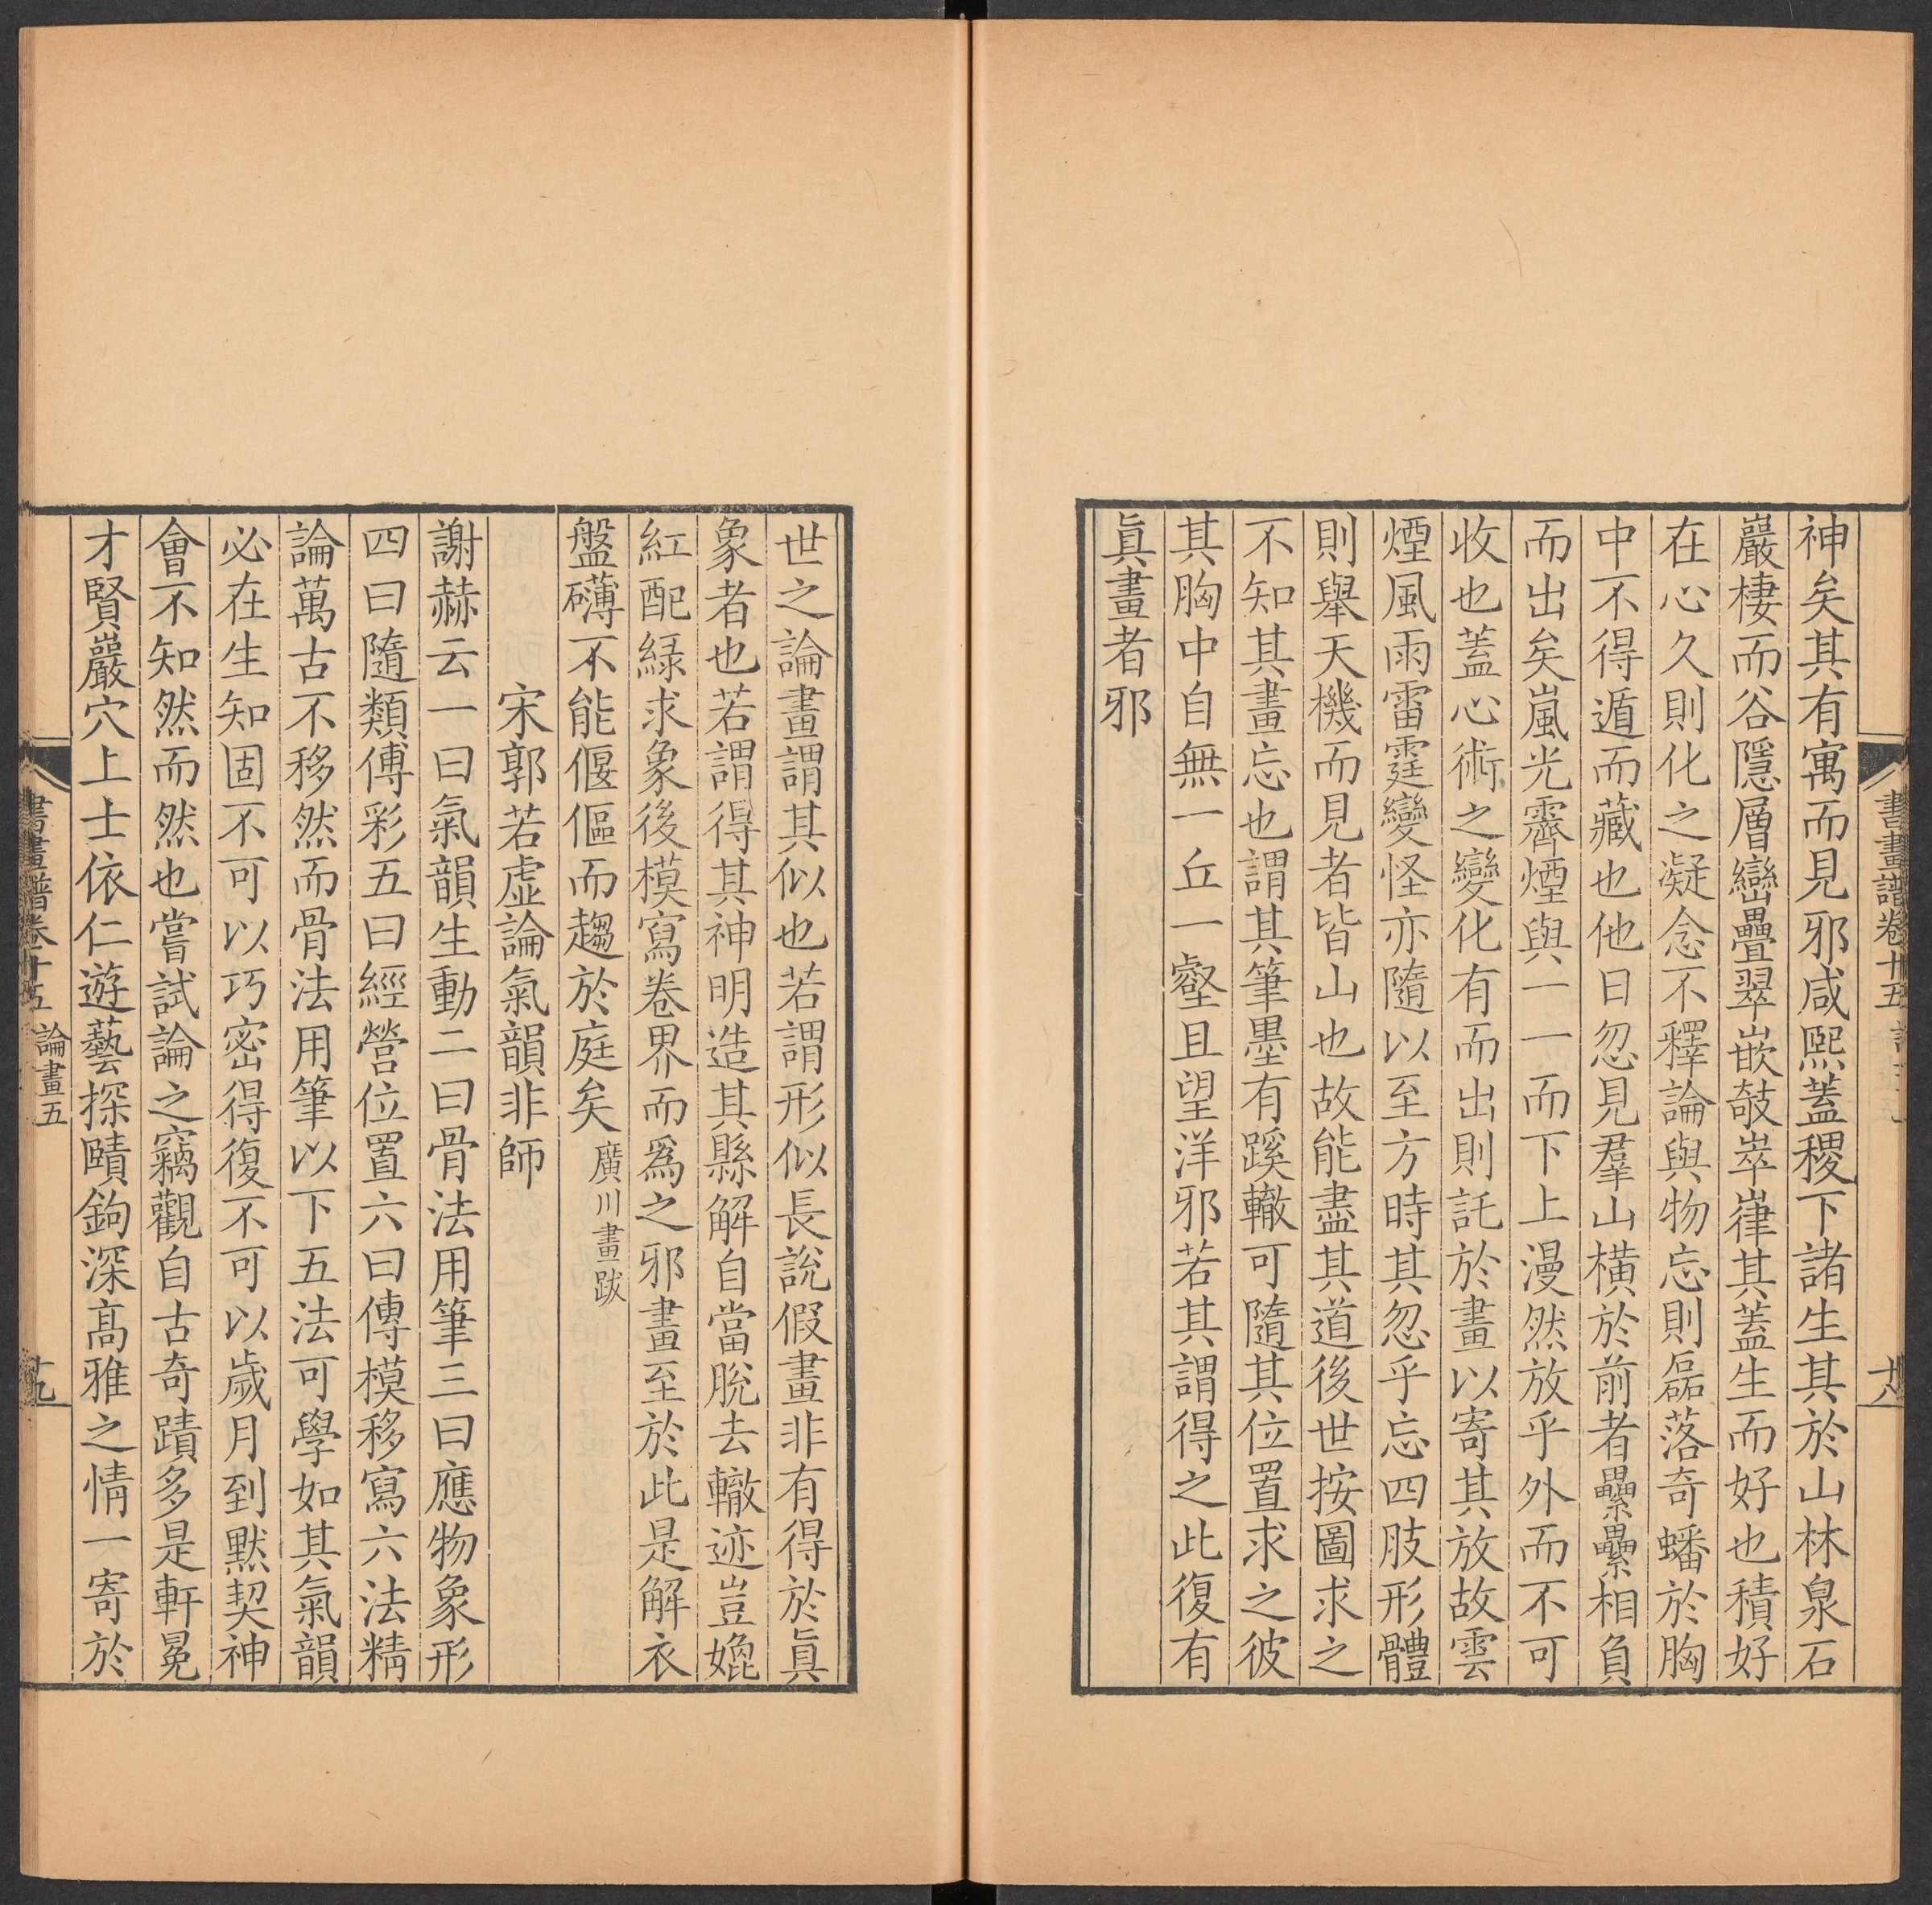 書畫譜卷十五
十八
神矣其有寓而見邪咸熙蓋稷下諸生其於山林泉石
巖棲而谷隱層巒疊翠嵌㩻崒嵂其蓋生而好也積好
在心久則化之凝念不釋論與物忘則磊落奇蟠於胸
中不得遁而藏也他日忽見羣山橫於前者纍纍相負
而出矣嵐光霽煙與一一而下上漫然放乎外而不可
收也蓋心術之變化有而出則託於畫以寄其放故雲
煙風雨雷霆變怪亦隨以至方時其忽乎忘四肢形體
則舉天機而見者皆山也故能盡其道後世按圖求之
不知其畫忘也謂其筆墨有蹊轍可隨其位置求之彼
其胸中自無一丘一壑且望洋邪若其謂得之此復有
眞畫者邪
世之論畫謂其似也若謂形似長說假畫非有得於眞
象者也若謂得其神明造其縣解自當脫去轍迹豈媲
紅配綠求象後模寫卷界而爲之邪畫至於此是解衣
盤礴不能偃傴而趨於庭矣廣川畫跋
宋郭若虛論氣韻非師
謝赫云一曰氣韻生動二曰骨法用筆三曰應物象形
四曰隨類傅彩五曰經營位置六曰傳模移寫六法精
論萬古不移然而骨法用筆以下五法可學如其氣韻
必在生知固不可以巧密得復不可以歲月到默契神
會不知然而然也嘗試論之竊觀自古奇蹟多是軒冕
才賢巖穴上士依仁遊藝探賾鉤深高雅之情一寄於
書畫譜卷十五 論畫五
十九